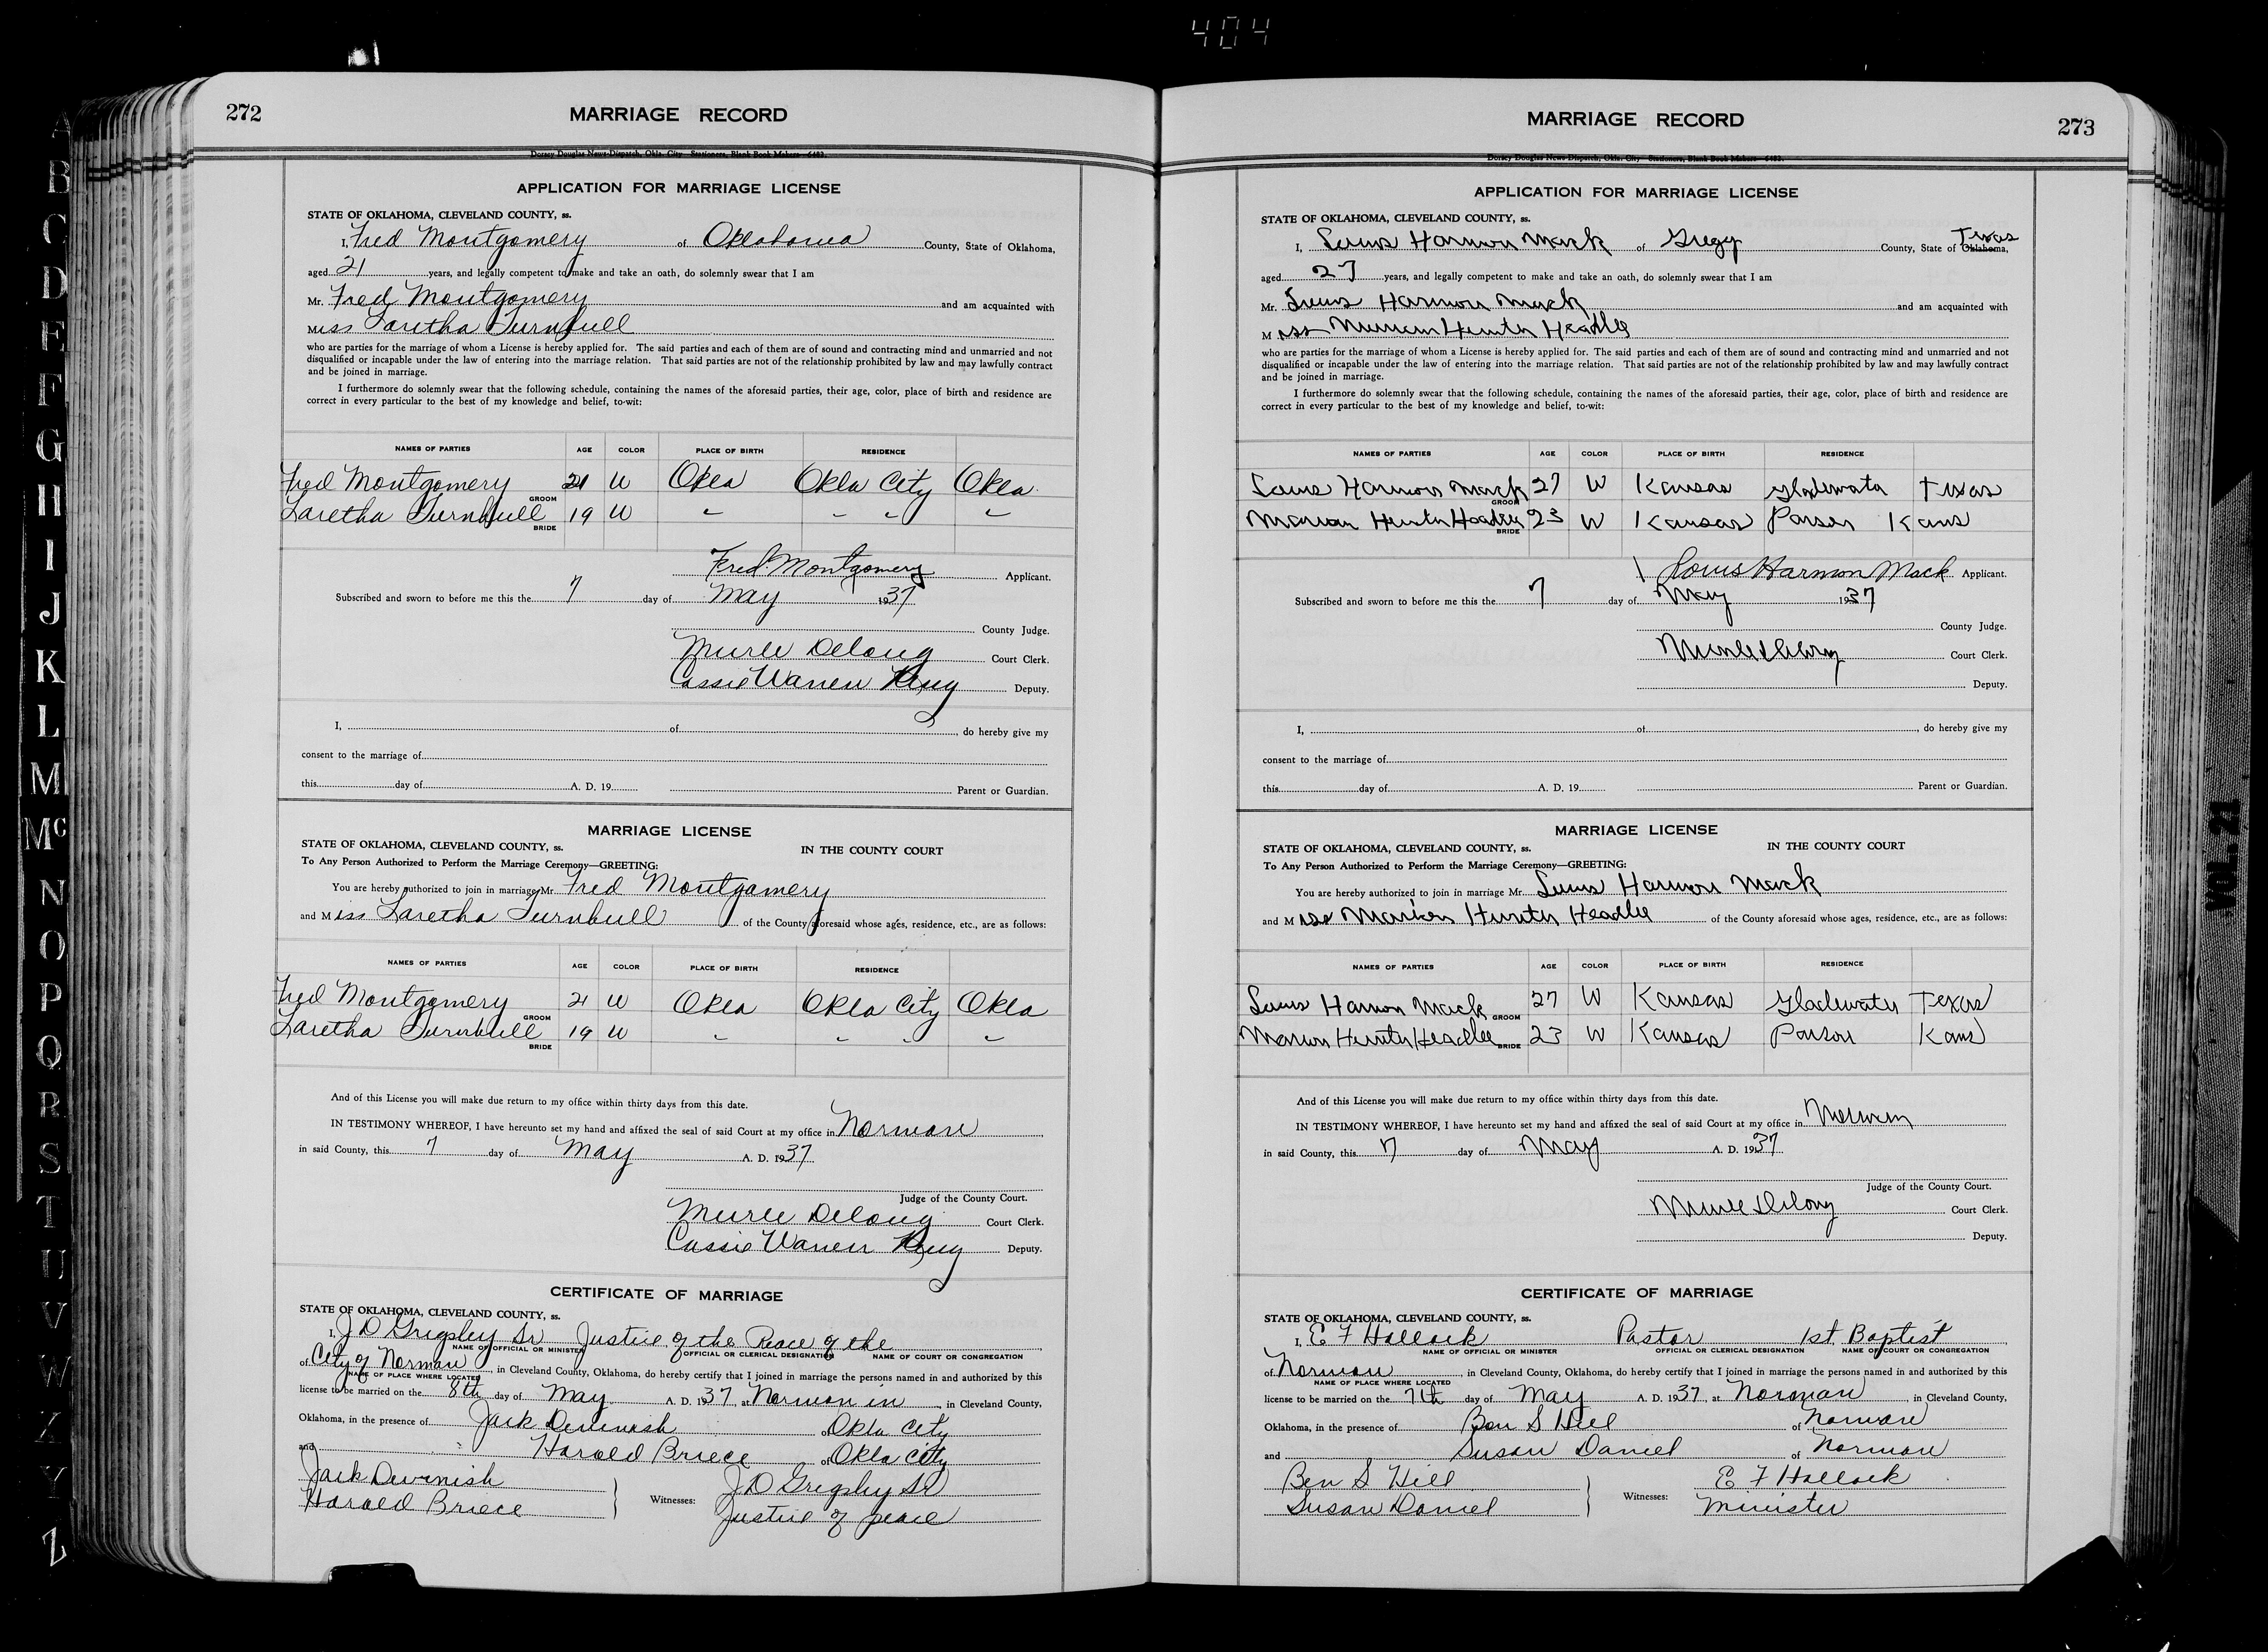 404
272
MARRIAGE RECORD
Dorsey Douglas News-Dispatch, Okla. City Stationers, Blank Book Makers 6483.
APPLICATION FOR MARRIAGE LICENSE
STATE OF OKLAHOMA, CLEVELAND COUNTY, ss.
I, Fred Montgomery of Oklahoma County, State of Oklahoma,
aged 21 years, and legally competent to make and take an oath, do solemnly swear that I am
Mr. Fred Montgomery and am acquainted with
Miss Laretha Turnbull
who are parties for the marriage of whom a License is hereby applied for. The said parties and each of them are of sound and contracting mind and unmarried and not
disqualified or incapable under the law of entering into the marriage relation. That said parties are not of the relationship prohibited by law and may lawfully contract
and be joined in marriage.
I furthermore do solemnly swear that the following schedule, containing the names of the aforesaid parties, their age, color, place of birth and residence are
correct in every particular to the best of my knowledge and belief, to-wit:
NAMES OF PARTIES AGE COLOR PLACE OF BIRTH RESIDENCE
Fred Montgomery GROOM 21 W Okla Okla City Okla.
Laretha Turnbull BRIDE 19 W " " " "
Fred Montgomery Applicant.
Subscribed and sworn to before me this the 7 day of May 1937
County Judge.
Murle Delong Court Clerk.
Cassie Warren King Deputy.
I, of , do hereby give my
consent to the marriage of
this day of A. D. 19 Parent or Guardian.
MARRIAGE LICENSE
STATE OF OKLAHOMA, CLEVELAND COUNTY, ss. IN THE COUNTY COURT
To Any Person Authorized to Perform the Marriage Ceremony—GREETING:
You are hereby authorized to join in marriage Mr Fred Montgomery
and Miss Laretha Turnbull of the County aforesaid whose ages, residence, etc., are as follows:
NAMES OF PARTIES AGE COLOR PLACE OF BIRTH RESIDENCE
Fred Montgomery GROOM 21 W Okla Okla City Okla
Laretha Turnbull BRIDE 19 W " " " "
And of this License you will make due return to my office within thirty days from this date.
IN TESTIMONY WHEREOF, I have hereunto set my hand and affixed the seal of said Court at my office in Norman
in said County, this 7 day of May A. D. 1937
Judge of the County Court.
Murle Delong Court Clerk.
Cassie Warren King Deputy.
CERTIFICATE OF MARRIAGE
STATE OF OKLAHOMA, CLEVELAND COUNTY, ss.
I, J D Grigsby Sr Justice of the Peace of the
NAME OF OFFICIAL OR MINISTER OFFICIAL OR CLERICAL DESIGNATION NAME OF COURT OR CONGREGATION
of City of Norman, in Cleveland County, Oklahoma, do hereby certify that I joined in marriage the persons named in and authorized by this
NAME OF PLACE WHERE LOCATED
license to be married on the 8th day of May A. D. 1937, at Norman in, in Cleveland County,
Oklahoma, in the presence of Jack Devinish of Okla City
and Harold Briece of Okla City
Jack Devinish J D Grigsby Sr
Witnesses:
Harold Briece Justice of peace
273
MARRIAGE RECORD
Dorsey Douglas News-Dispatch, Okla. City Stationers, Blank Book Makers 6483.
APPLICATION FOR MARRIAGE LICENSE
STATE OF OKLAHOMA, CLEVELAND COUNTY, ss.
I, Louis Harmon Mack of Gregg County, State of Oklahoma, Texas
aged 27 years, and legally competent to make and take an oath, do solemnly swear that I am
Mr. Louis Harmon Mack and am acquainted with
Miss Marian Hunter Headlee
who are parties for the marriage of whom a License is hereby applied for. The said parties and each of them are of sound and contracting mind and unmarried and not
disqualified or incapable under the law of entering into the marriage relation. That said parties are not of the relationship prohibited by law and may lawfully contract
and be joined in marriage.
I furthermore do solemnly swear that the following schedule, containing the names of the aforesaid parties, their age, color, place of birth and residence are
correct in every particular to the best of my knowledge and belief, to-wit:
NAMES OF PARTIES AGE COLOR PLACE OF BIRTH RESIDENCE
Louis Harmon Mack GROOM 27 W Kansas Gladewater Texas
Marian Hunter Headlee BRIDE 23 W Kansas Parson Kans
Louis Harmon Mack Applicant.
Subscribed and sworn to before me this the 7 day of May 1937
County Judge.
Murle Delong Court Clerk.
Deputy.
I, of , do hereby give my
consent to the marriage of
this day of A. D. 19 Parent or Guardian.
MARRIAGE LICENSE
STATE OF OKLAHOMA, CLEVELAND COUNTY, ss. IN THE COUNTY COURT
To Any Person Authorized to Perform the Marriage Ceremony—GREETING:
You are hereby authorized to join in marriage Mr. Louis Harmon Mack
and Miss Marion Hunter Headlee of the County aforesaid whose ages, residence, etc., are as follows:
NAMES OF PARTIES AGE COLOR PLACE OF BIRTH RESIDENCE
Louis Harmon Mack GROOM 27 W Kansas Gladewater Texas
Marion Hunter Headlee BRIDE 23 W Kansas Parson Kans
And of this License you will make due return to my office within thirty days from this date.
IN TESTIMONY WHEREOF, I have hereunto set my hand and affixed the seal of said Court at my office in Norman
in said County, this 7 day of May A. D. 1937
Judge of the County Court.
Murle Delong Court Clerk.
Deputy.
CERTIFICATE OF MARRIAGE
STATE OF OKLAHOMA, CLEVELAND COUNTY, ss.
I, E F Hallock Pastor 1st Baptist
NAME OF OFFICIAL OR MINISTER OFFICIAL OR CLERICAL DESIGNATION NAME OF COURT OR CONGREGATION
of Norman, in Cleveland County, Oklahoma, do hereby certify that I joined in marriage the persons named in and authorized by this
NAME OF PLACE WHERE LOCATED
license to be married on the 7th day of May A. D. 1937, at Norman, in Cleveland County,
Oklahoma, in the presence of Ben S Hill of Norman
and Susan Daniel of Norman
Ben S Hill E F Hallock
Witnesses:
Susan Daniel Minister
A
B
C
D
E
F
G
H
I
J
K
L
M
Mc
N
O
P
Q
R
S
T
U
V
W
X
Y
Z
VOL. 21